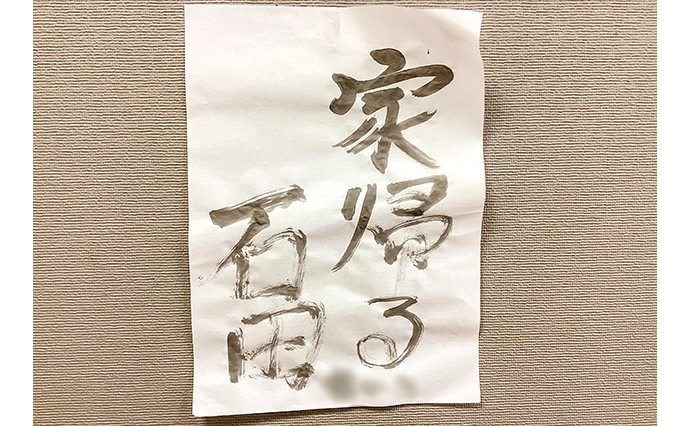 家帰る
石田